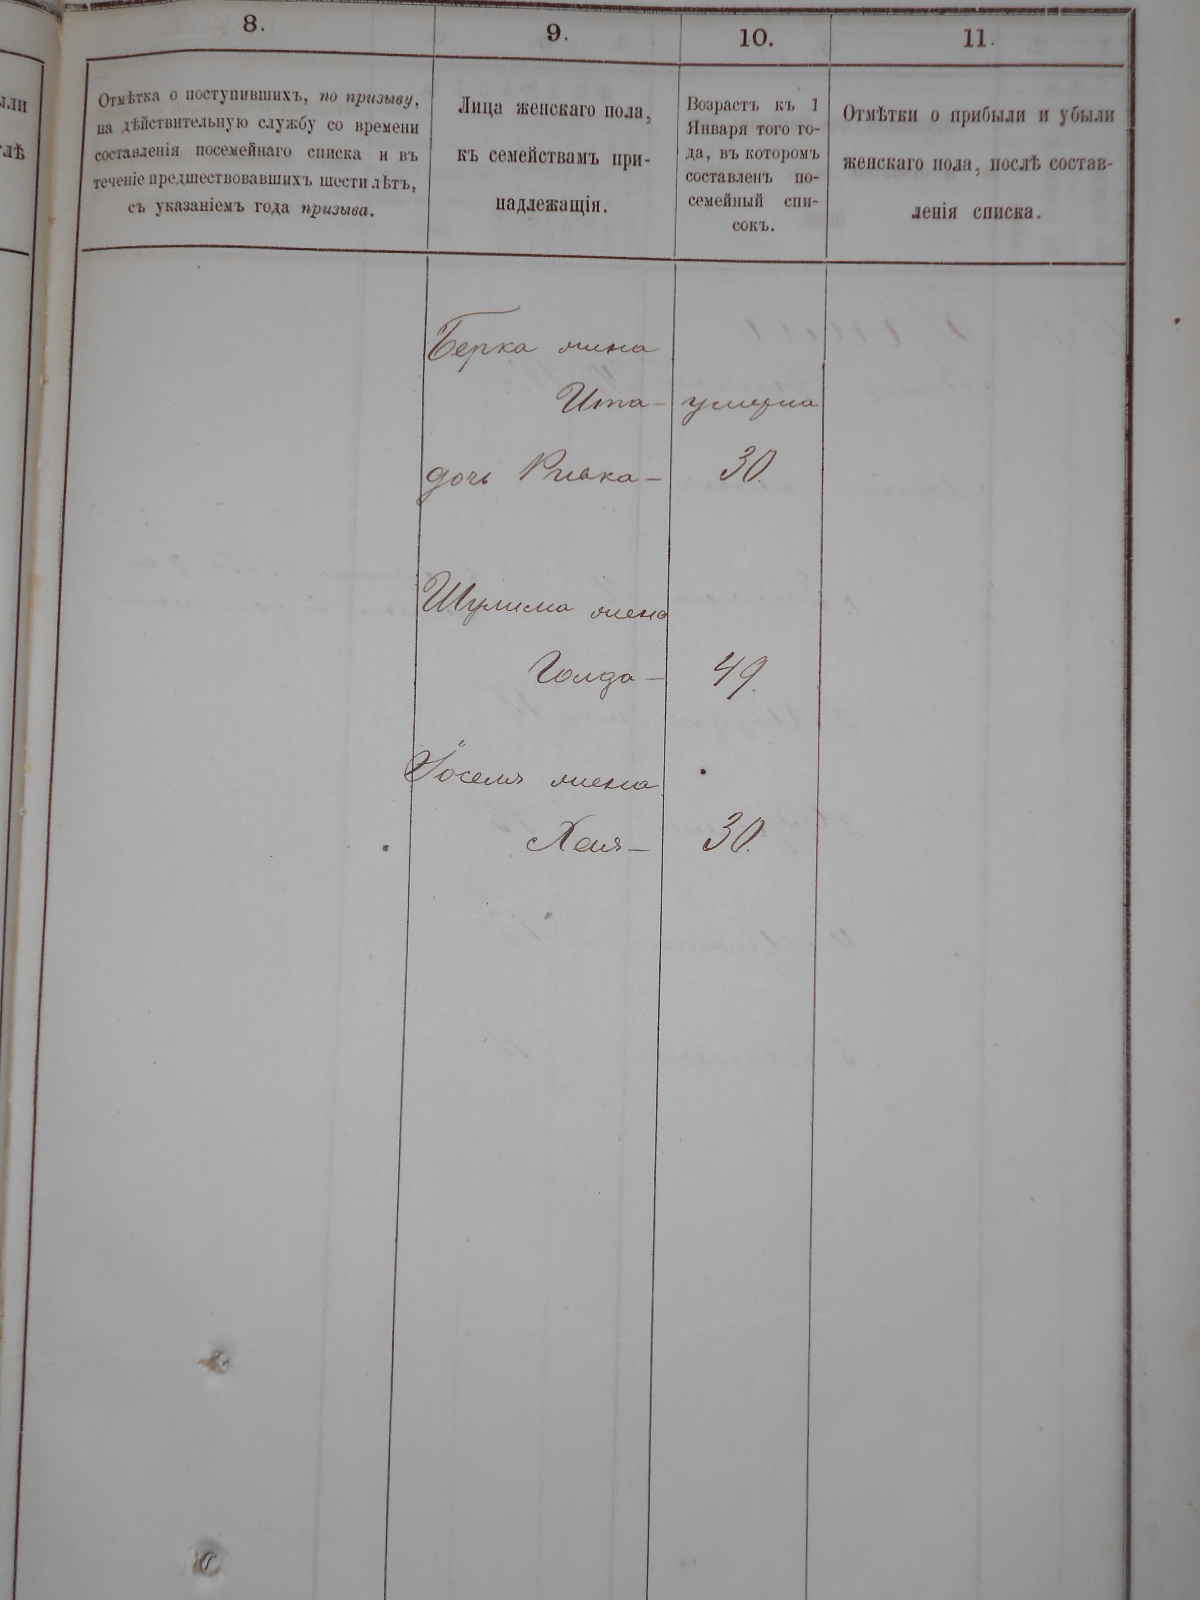 8.
9.
10.
11.
Отмѣтка о поступившихъ, по призыву,
на дѣйствительную службу со времени
составленія посемейнаго списка и въ
теченіе предшествовавшихъ шести лѣтъ,
съ указаніемъ года призыва.
Лица женскаго пола,
къ семействамъ при-
надлежащія.
Возрастъ къ 1
Января того го-
да, въ которомъ
составленъ по-
семейный спи-
сокъ.
Отмѣтки о прибыли и убыли
женскаго пола, послѣ состав-
ленія списка.
Берка жена
Ита — умерла
дочь Ривка — 30.
Шулима жена
Голда — 49.
Іосель жена
Хая — 30.